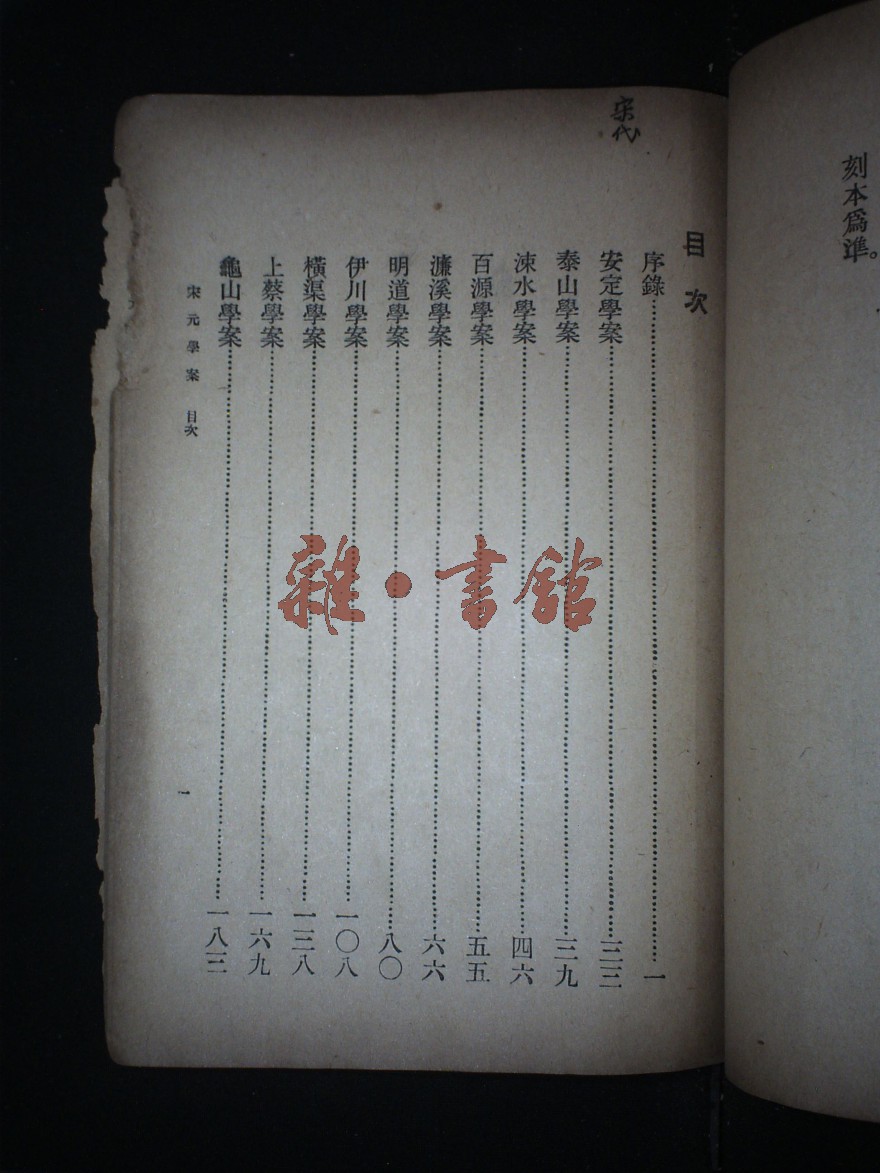 刻本爲準。
宋代
目次
序錄……一
安定學案……三三
泰山學案……三九
涑水學案……四六
百源學案……五五
濂溪學案……六六
明道學案……八〇
伊川學案……一〇八
橫渠學案……一三八
上蔡學案……一六九
龜山學案……一八三
宋元學案 目次 一
雜·書館